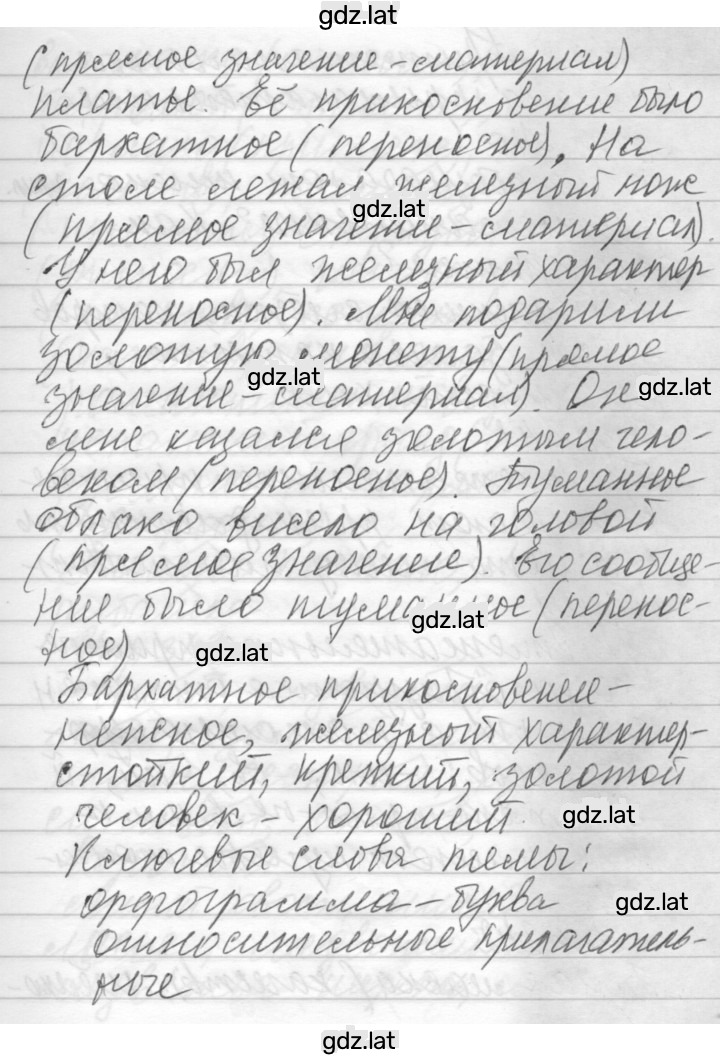 gdz.lat
(прямое значение - материал)
платье. Её прикосновение было
бархатное (переносное). На
столе лежал железный нож
gdz.lat
(прямое значение - материал).
У него был железный характер
(переносное). Мне подарили
золотую монету (прямое
gdz.lat
gdz.lat
значение - материал). Он
мне казался золотым чело-
веком (переносное). Туманное
облако висело на головой
(прямое значение). Его сообще-
ние было туманное (перенос-
gdz.lat
ное)
gdz.lat
Бархатное прикосновение -
нежное, железный характер-
стойкий, крепкий, золотой
человек - хороший
gdz.lat
Ключевые слова темы:
орфограмма - буква
gdz.lat
относительные прилагатель-
ные
gdz.lat